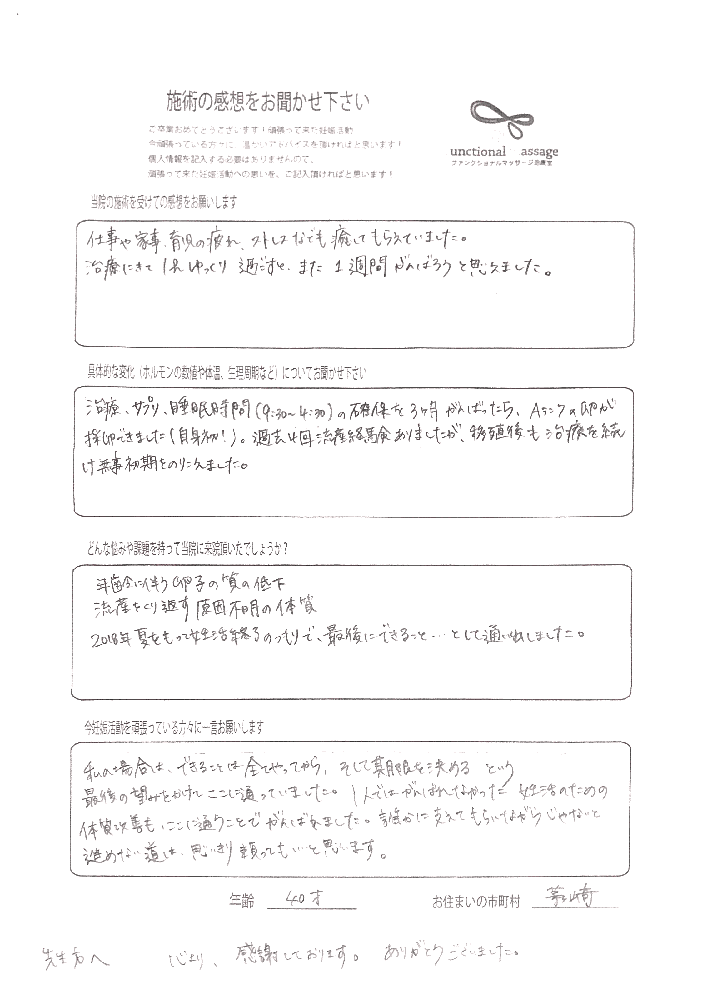 施術の感想をお聞かせ下さい
ご卒業おめでとうございます！頑張って来た妊娠活動
今頑張っている方々に、温かいアドバイスを頂ければと思います！
個人情報を記入する必要はありませんので、
頑張って来た妊娠活動への思いを、ご記入頂ければと思います！
unctional assage
ファンクショナルマッサージ治療室
当院の施術を受けての感想をお願いします
仕事や家事、育児の疲れ、ストレスなども癒してもらえていました。
治療にきて1hゆっくり過ごすと、また1週間がんばろうと思えました。
具体的な変化（ホルモンの数値や体温、生理周期など）についてお聞かせ下さい
治療、サプリ、睡眠時間（9:30～4:30）の確保を3ヶ月がんばったら、Aランクの卵が
採卵できました（自身初！）。過去4回流産経験ありましたが、移植後も治療を続
け無事初期をのりこえました。
どんな悩みや課題を持って当院に来院頂いたでしょうか？
年齢に伴う卵子の質の低下
流産をくり返す原因不明の体質
2018年夏をもって妊活終るつもりで、最後にできること…として通い出しました。
今妊娠活動を頑張っている方々に一言お願いします
私の場合は、できることは全てやってから、そして期限を決めるという
最後の望みをかけてここに通っていました。1人ではがんばれなかった妊活のための
体質改善も、ここに通うことでがんばれました。誰かに支えてもらいながらじゃないと
進めない道は、思いきり頼ってもいいと思います。
年齢 40才
お住まいの市町村 茅ヶ崎
先生方へ 心より、感謝しております。ありがとうございました。